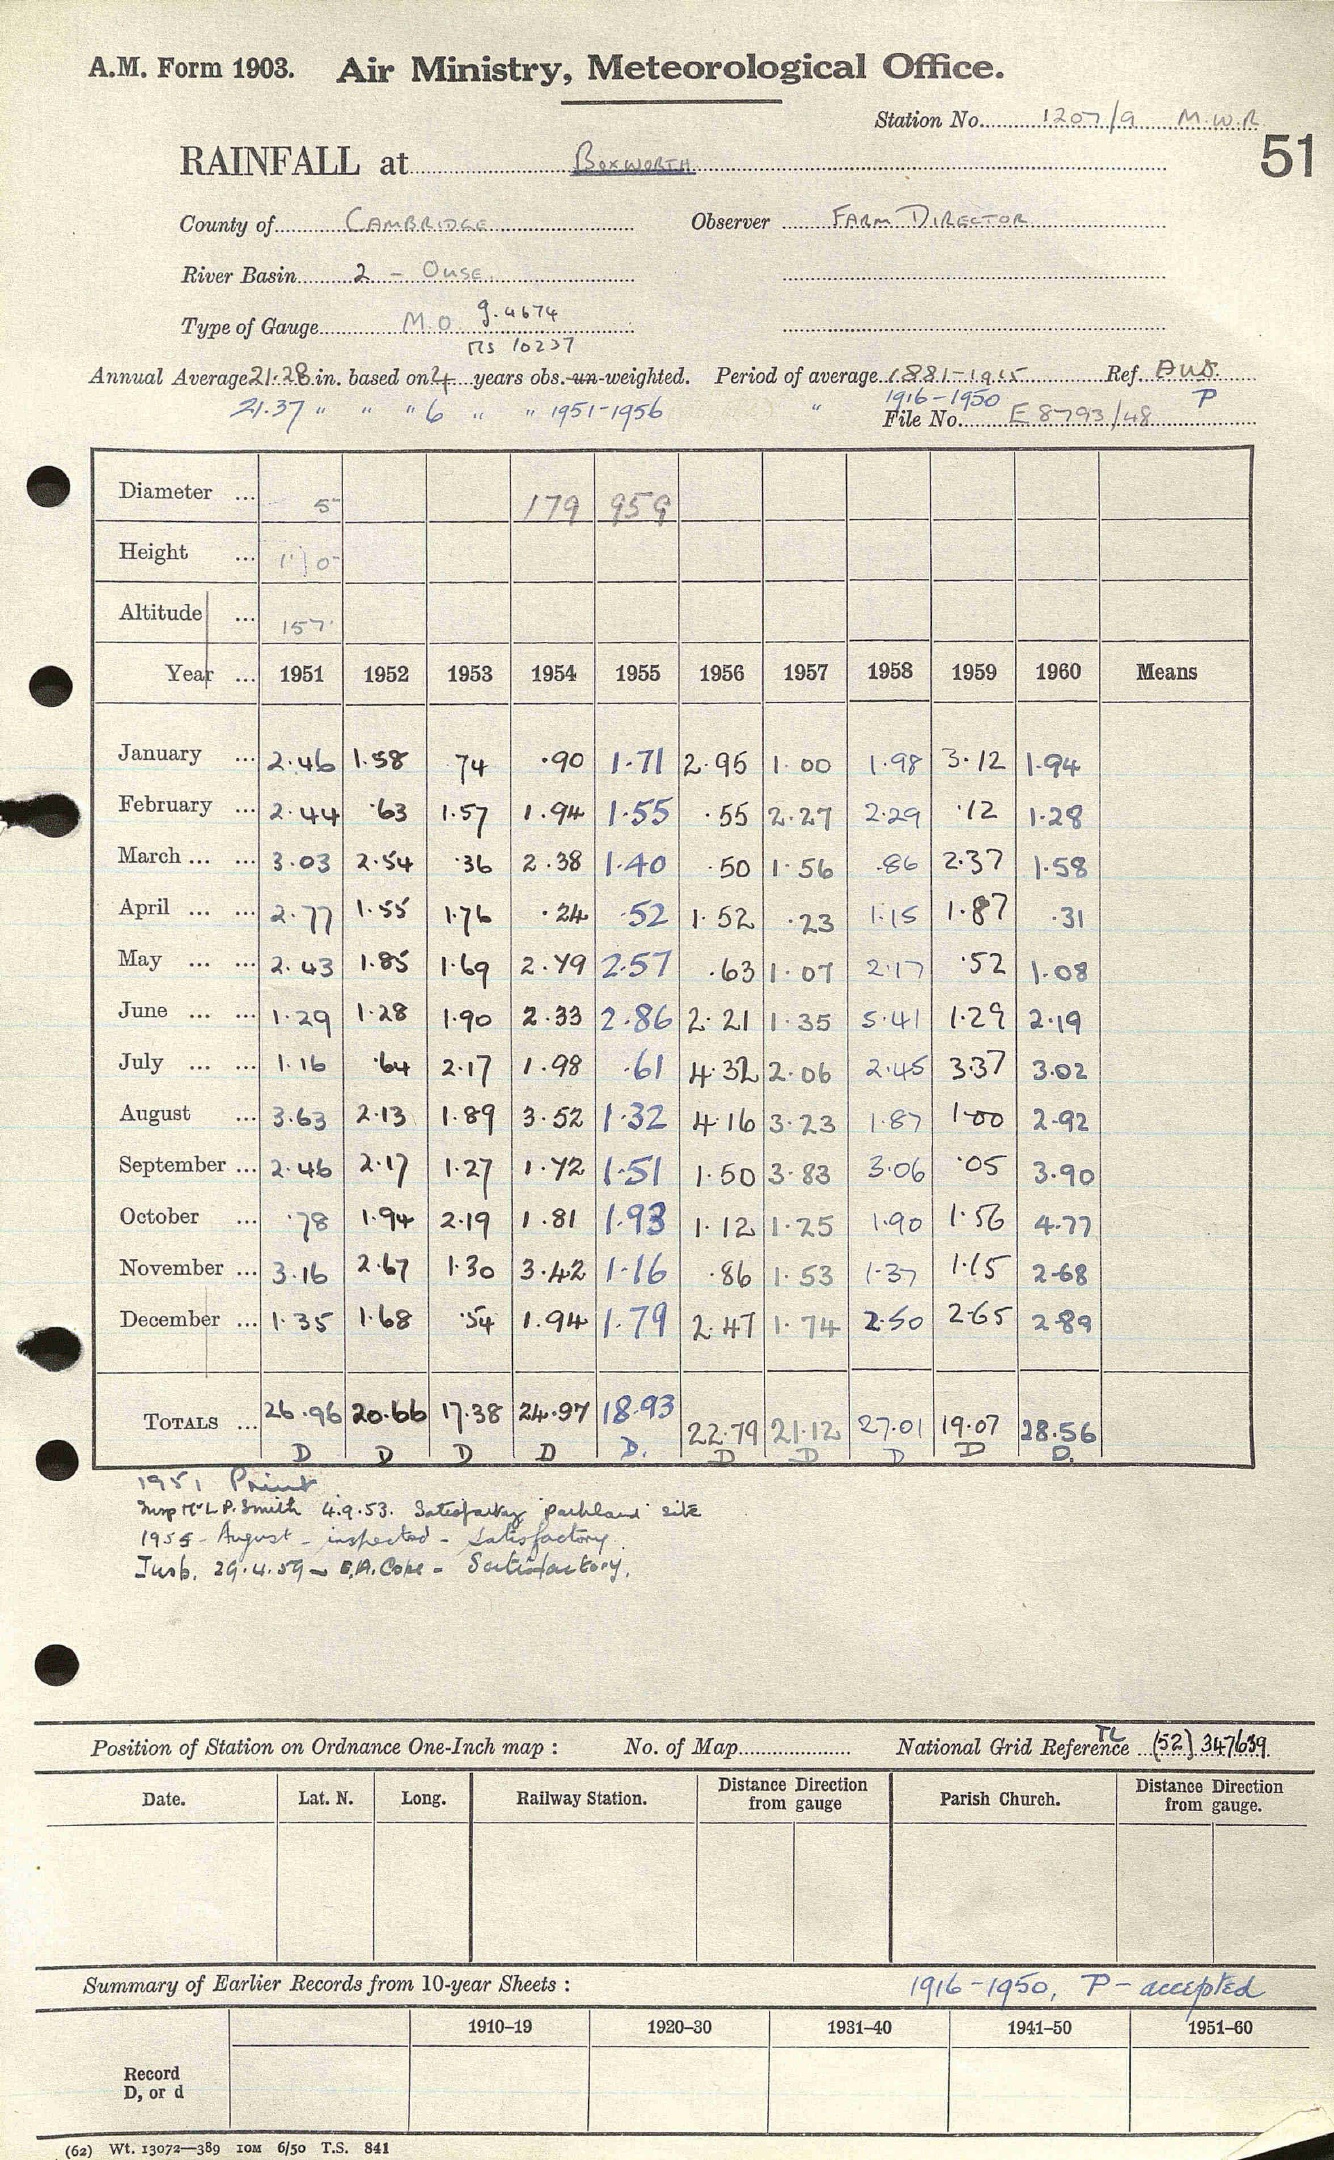 A.M. Form 1903. Air Ministry, Meteorological Office.
Station No. 1207/9 M.W.R
51
RAINFALL at BOXWORTH
County of CAMBRIDGE Observer FARM DIRECTOR
River Basin 2 - OUSE.
Type of Gauge M.O. g.4674
MS 10237
Annual Average 21.28 in. based on 4 years obs. un-weighted. Period of average 1881-1915 Ref.
21.37 " " " 6 " " 1951-1956 " 1916-1950 P
File No. E 8793/48
Diameter ... 5 179 959
Height ... 1' 0
Altitude ... 157
Year ... 1951 1952 1953 1954 1955 1956 1957 1958 1959 1960 Means
January ... 2.46 1.58 .74 .90 1.71 2.95 1.00 1.98 3.12 1.94
February ... 2.44 .63 1.57 1.94 1.55 .55 2.27 2.29 .12 1.28
March ... ... 3.03 2.54 .36 2.38 1.40 .50 1.56 .86 2.37 1.58
April ... ... 2.77 1.55 1.76 .24 .52 1.52 .23 1.15 1.87 .31
May ... ... 2.43 1.85 1.69 2.79 2.57 .63 1.07 2.17 .52 1.08
June ... ... 1.29 1.28 1.90 2.33 2.86 2.21 1.35 5.41 1.29 2.19
July ... ... 1.16 .64 2.17 1.98 .61 4.32 2.06 2.45 3.37 3.02
August ... 3.63 2.13 1.89 3.52 1.32 4.16 3.23 1.87 1.00 2.92
September ... 2.46 2.17 1.27 1.72 1.51 1.50 3.83 3.06 .05 3.90
October ... .78 1.94 2.19 1.81 1.93 1.12 1.25 1.90 1.56 4.77
November ... 3.16 2.67 1.30 3.42 1.16 .86 1.53 1.37 1.15 2.68
December ... 1.35 1.68 .54 1.94 1.79 2.47 1.74 2.50 2.65 2.89
TOTALS ... 26.96 20.66 17.38 24.97 18.93 22.79 21.12 27.01 19.07 28.56
D D D D D. D D D D D.
1951 Print
Insp Mr L.P. Smith 4.9.53. Satisfactory parkland site
1955 - August - inspected - satisfactory.
Insp. 29.4.59 - E.A. Cope - Satisfactory.
Position of Station on Ordnance One-Inch map : No. of Map National Grid Reference TL (52) 347639
Date. Lat. N. Long. Railway Station. Distance Direction from gauge Parish Church. Distance Direction from gauge.
Summary of Earlier Records from 10-year Sheets : 1916-1950, P - accepted
1910-19 1920-30 1931-40 1941-50 1951-60
Record
D, or d
(62) Wt. 13072—389 10M 6/50 T.S. 841